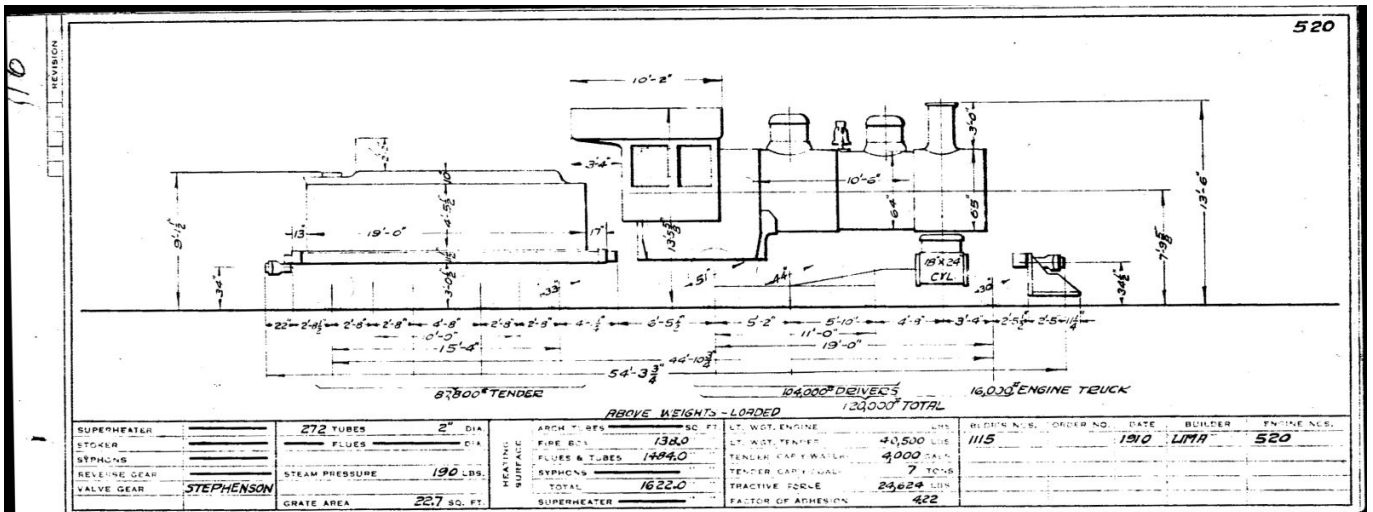 520
REVISION
10'-2"
3'-4"
10'-6"
3'-0"
13'-6"
9'-1½"
13"
19'-0"
17"
4'-5½"
10"
64"
65"
7'-9⅝"
18"X24
CYL.
34"
33"
51"
44"
30"
34½"
22"
2'-8½"
2'-8"
2'-8"
4'-8"
2'-8"
2'-8"
6'-5½"
5'-2"
5'-10"
4'-9"
3'-4"
2'-5"
10'-0"
11'-0"
15'-4"
19'-0"
44'-10¾"
54'-3¾"
TENDER
104,000# DRIVERS
16,000# ENGINE TRUCK
120,000# TOTAL
ABOVE WEIGHTS - LOADED
SUPERHEATER
STOKER
SYPHONS
REVERSE GEAR
VALVE GEAR STEPHENSON
272 TUBES 2" DIA
FLUES DIA
STEAM PRESSURE 190 LBS.
GRATE AREA 22.7 SQ. FT.
HEATING SURFACE
ARCH TUBES SQ. FT.
FIRE BOX 138.0
FLUES & TUBES 1484.0
SYPHONS
TOTAL 1622.0
SUPERHEATER
LT. WGT. ENGINE LBS
LT. WGT. TENDER 40,500 LBS
TENDER CAP'Y WATER 4,000 GALS
TENDER CAP'Y COAL 7 TONS
TRACTIVE FORCE 24,624 LBS
FACTOR OF ADHESION 4.22
BLDR'S NOS. ORDER NO. DATE BUILDER ENGINE NOS.
1115 1910 LIMA 520